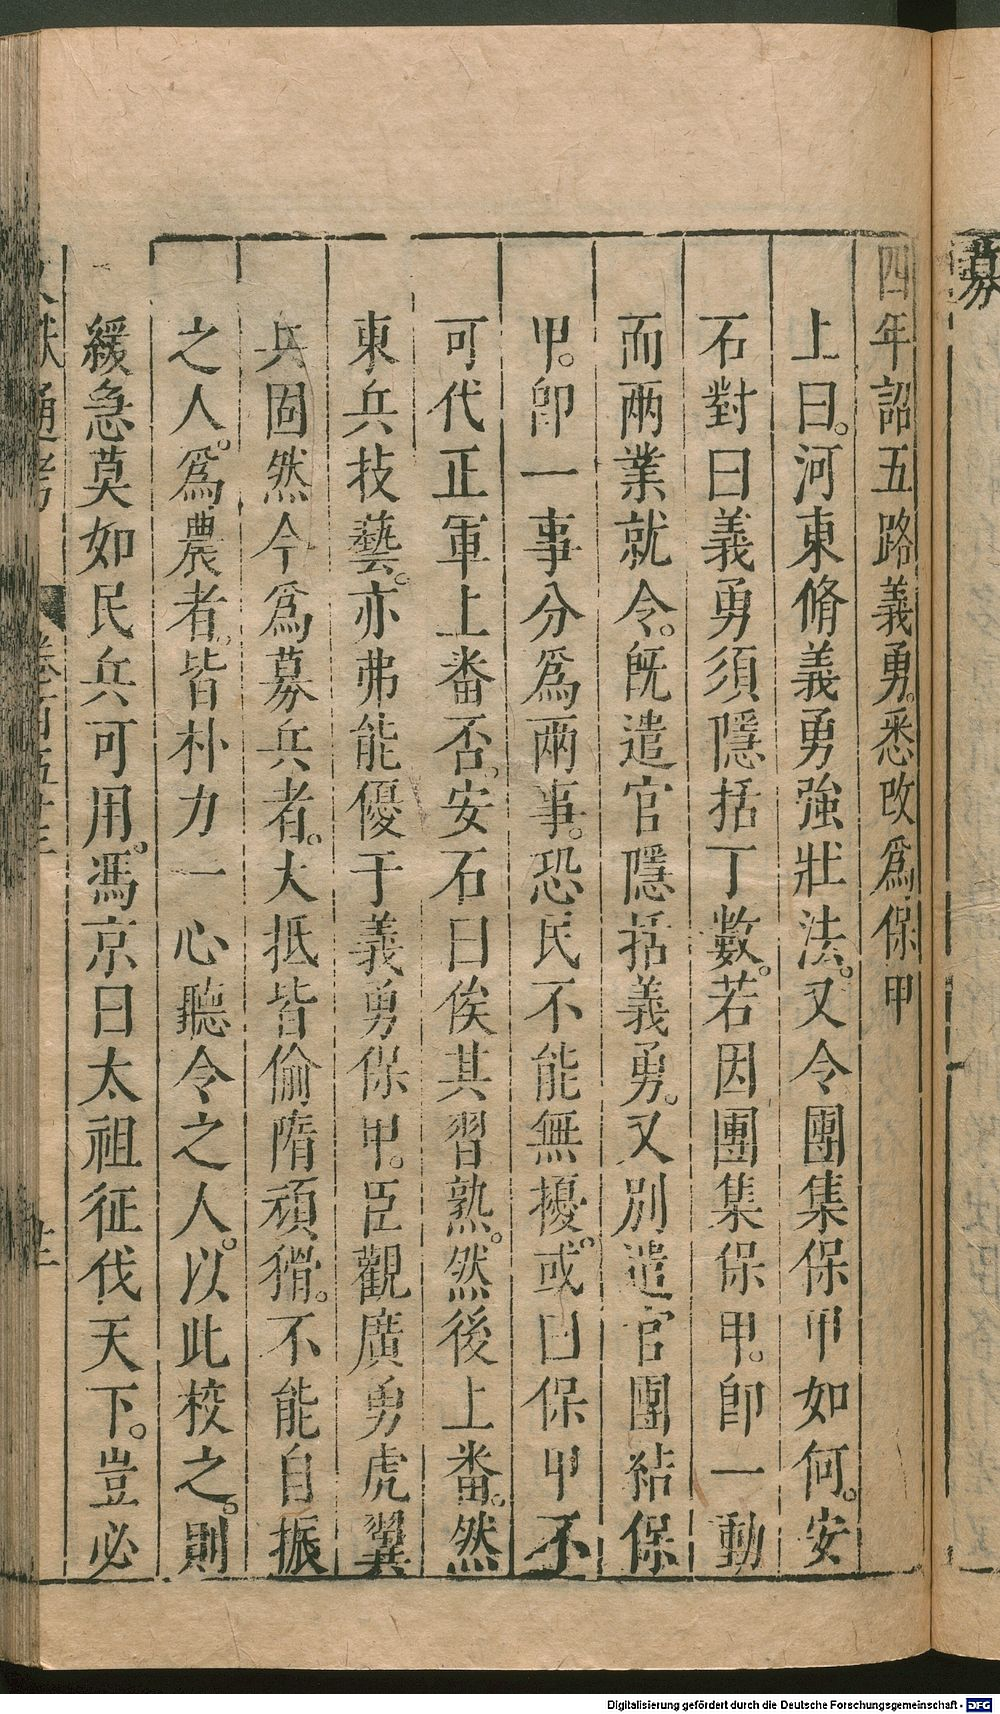 四年詔五路義勇。悉改爲保甲
上曰。河東脩義勇強壯法。又令團集保甲如何。安
石對曰義勇須隱括丁數。若因團集保甲。卽一動
而兩業就令。旣遣官隱括義勇。又別遣官團結保
甲。卽一事分爲兩事。恐民不能無擾。或曰保甲不
可代正軍上番否。安石曰俟其習熟。然後上番。然
東兵技藝。亦弗能優于義勇保甲。臣觀廣勇虎翼
兵固然今爲募兵者。大抵皆偷隋頑猾。不能自振
之人。爲農者。皆朴力一心聽令之人。以此校之。則
緩急莫如民兵可用。馮京曰太祖征伐天下。豈必
獻通考
募
Digitalisierung gefördert durch die Deutsche Forschungsgemeinschaft - DFG